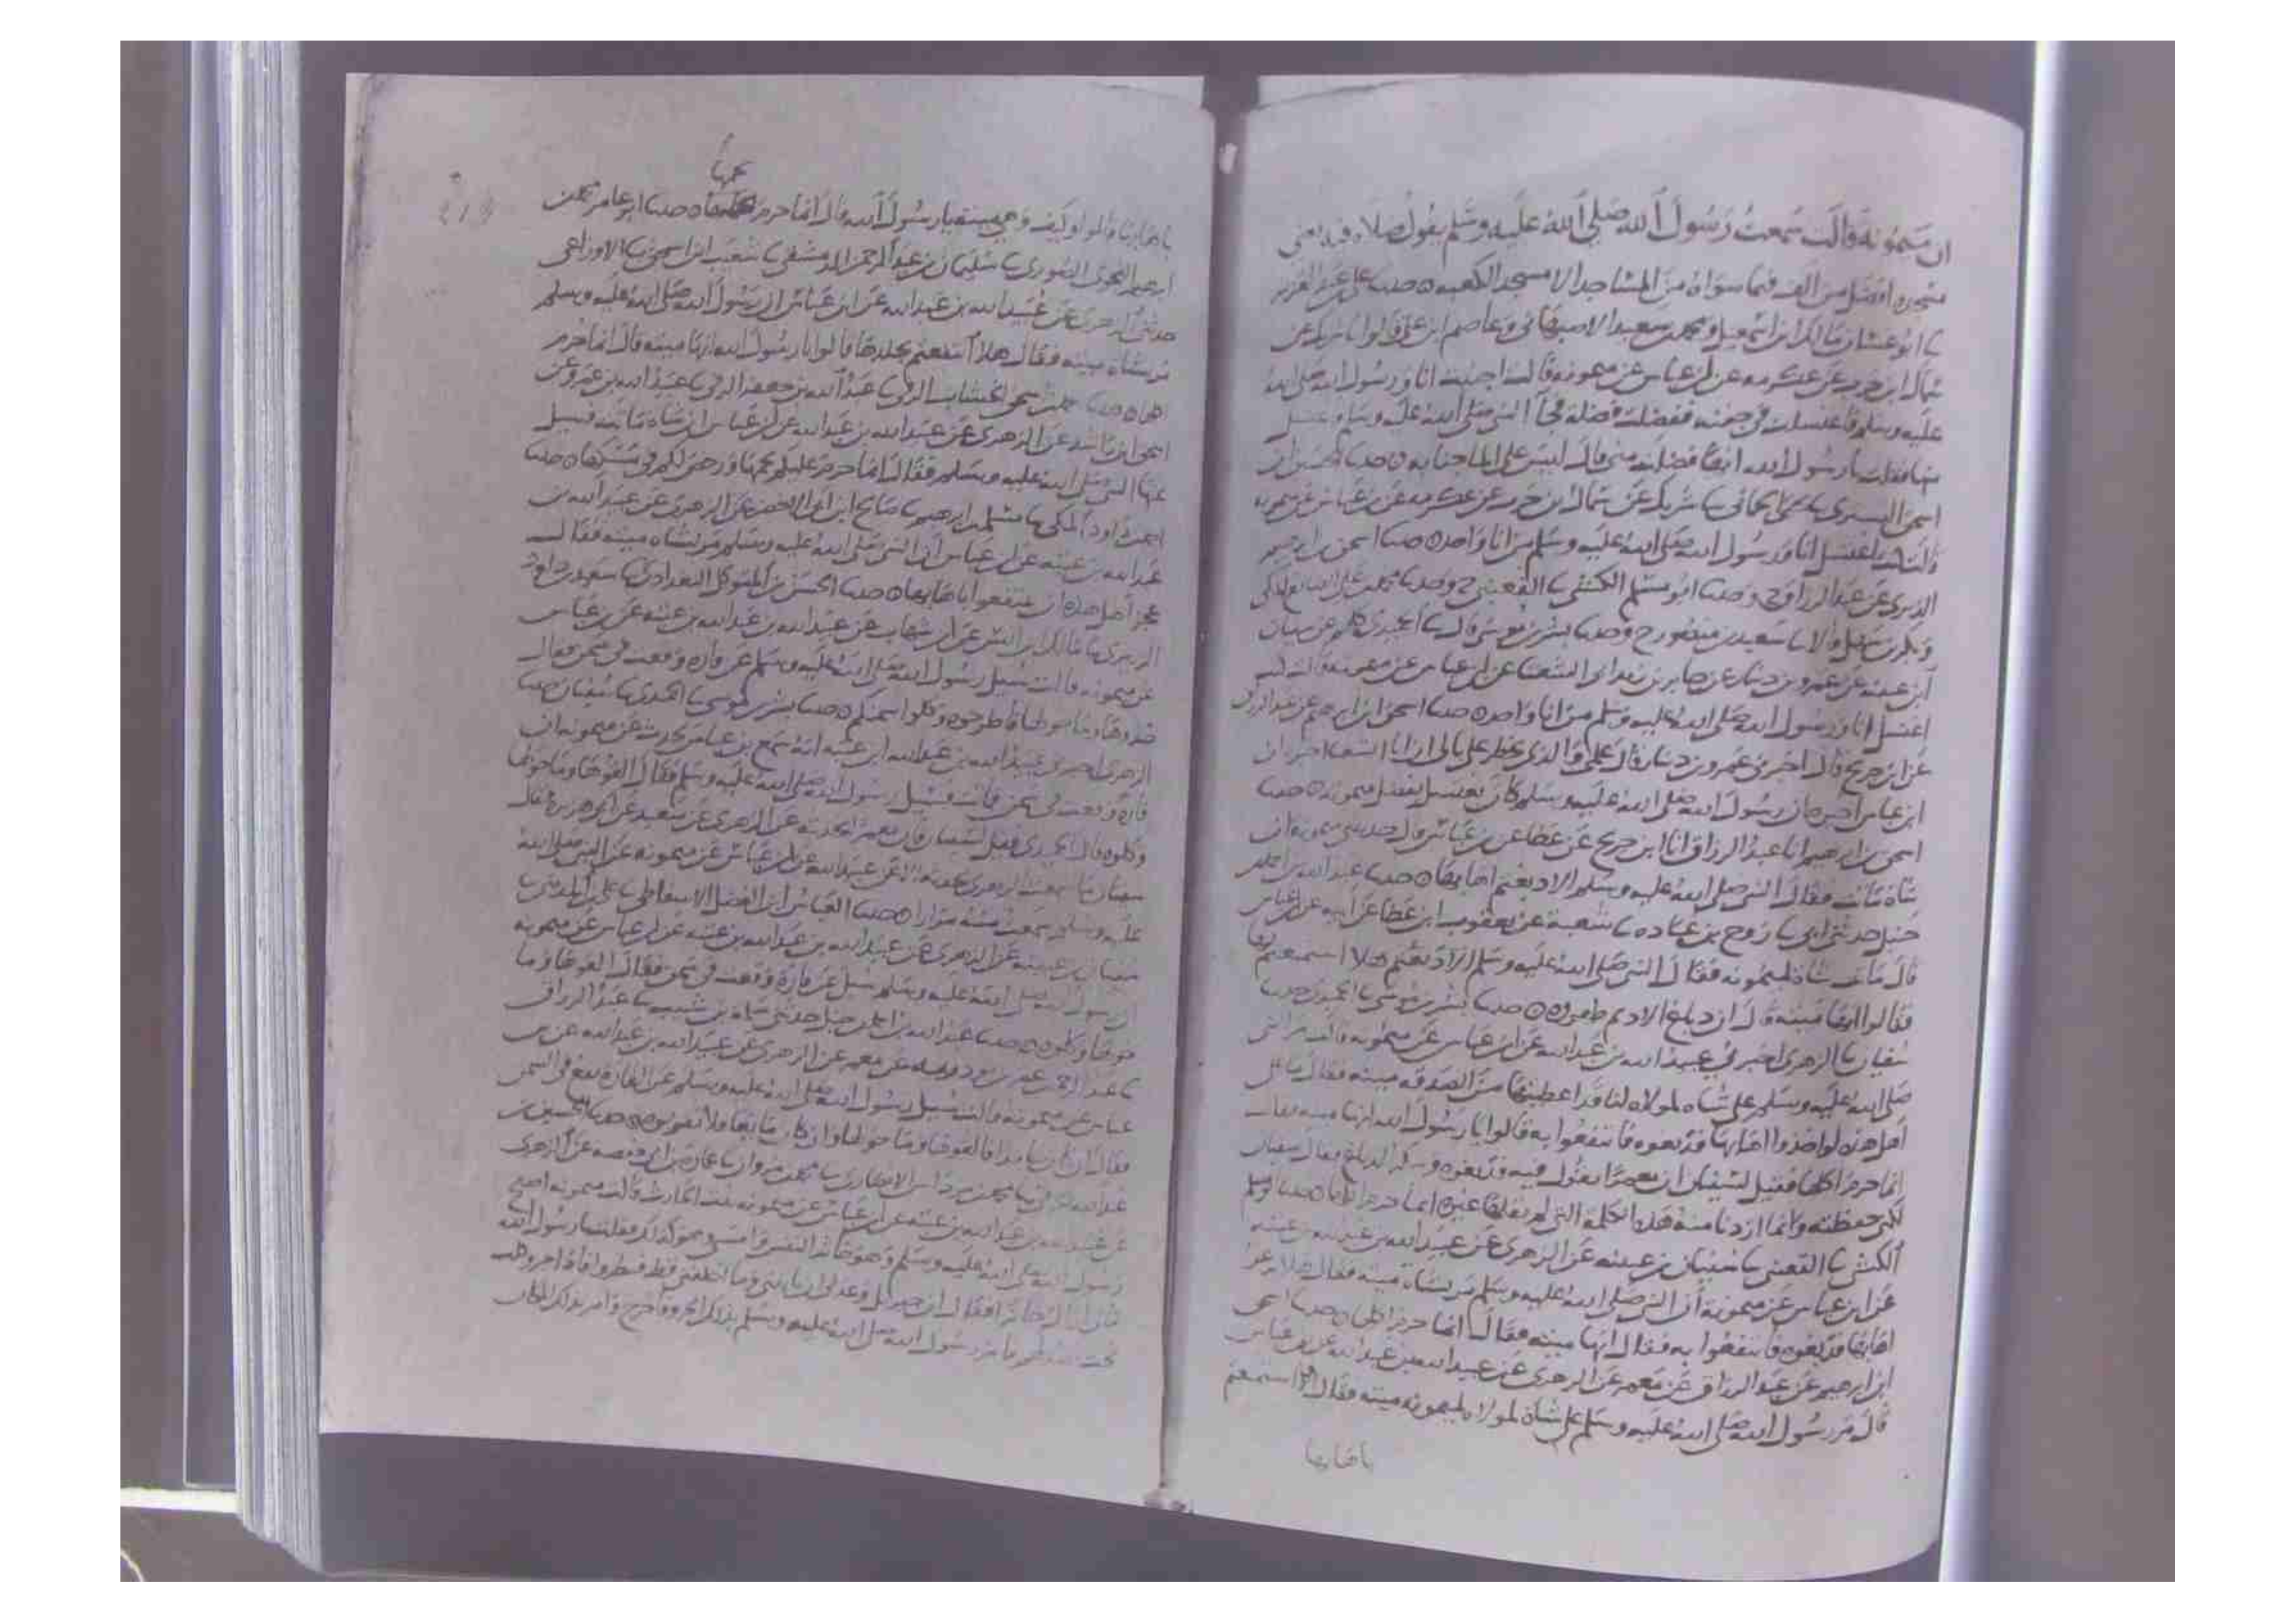 ان ميمونة قالت سمعت رسول الله صلى الله عليه وسلم يقول صلاة فيه يعني
مسجده افضل من الف فيما سواه من المساجد الا مسجد الكعبة حدثنا علي بن عبد العزيز
ثنا ابو غسان ثنا مالك بن اسمعيل ومحمد بن سعيد الاصبهاني وعاصم بن علي قالوا ثنا شريك عن
سماك ابن حرب عن عكرمه عن ابن عباس عن ميمونه قالت اجنبت انا ورسول الله صلى الله
عليه وسلم فاغتسلت في جفنه ففضلت فضله فجآ النبي صلى الله عليه وسلم يغتسل
منها فقلت يا رسول الله انها فضله مني قال ليس على الما جنابه حدثنا الحسين ابن
اسحق التستري ثنا يحيى الحماني ثنا شريك عن سماك ابن حرب عن عكرمه عن ابن عباس عن ميمونه
قالت كنت اغتسل انا ورسول الله صلى الله عليه وسلم من انا واحد حدثنا اسحق بن ابرهيم
الدبري عن عبد الرزاق ح وحدثنا ابو مسلم الكشي ثنا القعنبي ح وحدثنا محمد بن علي الصايغ المكي
وبكر بن سهل قالا ثنا سعيد بن منصور ح وحدثنا بشر بن موسى قال ثنا الحميدي كلهم عن سفيان
ابن عيينه عن عمرو بن دينار عن جابر بن زيد ابي الشعثا عن ابن عباس عن ميمونه قالت كنت
اغتسل انا ورسول الله صلى الله عليه وسلم من انا واحد حدثنا اسحق ابن ابرهيم عن عبد الرزاق
عن ابن جريج قال اخبرني عمرو بن دينار قال علمي والذي يخطر على بالي ان ابا الشعثا اخبرني ان
ابن عباس اخبره ان رسول الله صلى الله عليه وسلم كان يغتسل بفضل ميمونه حدثنا
اسحق بن ابرهيم انا عبد الرزاق انا ابن جريج عن عطا عن ابن عباس قال حدثتني ميمونه ان
شاة ماتت فقال النبي صلى الله عليه وسلم الا دبغتم اهابها حدثنا عبد الله بن احمد بن
حنبل حدثني ابي ثنا روح بن عباده ثنا شعبة عن يعقوب ابن عطا عن ابيه عن ابن عباس
قال ماتت شاة لميمونه فقال النبي صلى الله عليه وسلم الا دبغتم هلا استمتعتم بها
فقالوا انها ميته قال ان دباغ الاديم طهوره حدثنا بشر بن موسى ثنا الحميدي حدثنا
سفيان ثنا الزهري اخبرني عبيد الله بن عبد الله عن ابن عباس عن ميمونه قالت مر النبي
صلى الله عليه وسلم على شاه لمولاه لنا قد اعطيتها من الصدقه ميته فقال ما على
اهل هذه لو اخذوا اهابها فدبغوه فانتفعوا به قالوا يا رسول الله انها ميته فقال
انما حرم اكلها فقيل لسفيان ان معمرا يقول فيه فدبغوه وينكر الدباغ فقال سفيان
لكني حفظته وانما اردنا منه هذه الكلمة التي لم يقلها غيره انما حرم اكلها حدثنا ابو مسلم
الكشي ثنا القعنبي ثنا سفيان بن عيينه عن الزهري عن عبيد الله بن عبد الله بن عتبه
عن ابن عباس عن ميمونة ان النبي صلى الله عليه وسلم مر بشاة ميته فقال هلا نزعتم
اهابها فدبغوه فانتفعوا به فقال انها ميته فقال انما حرم اكلها حدثنا اسحق
ابن ابرهيم عن عبد الرزاق عن معمر عن الزهري عن عبيد الله بن عبد الله عن ابن عباس
قال مر رسول الله صلى الله عليه وسلم على شاة لمولاه لميمونه ميته فقال افلا استمتعتم
باهابها
لحمها
باهابها قالوا وكيف وهي ميته يا رسول الله قال انما حرم حدثنا ابو عامر محمد بن
ابرهيم النحوي الصوري ثنا سليمان بن عبد الرحمن الدمشقي ثنا شعيب ابن اسحق ثنا الاوزاعي
حدثني الزهري عن عبيد الله بن عبد الله عن ابن عباس ان رسول الله صلى الله عليه وسلم
مر بشاة ميته فقال هلا انتفعتم بجلدها قالوا يا رسول الله انها ميته قال انما حرم
اكلها حدثنا محمد بن يحيى الخشاب الرقي ثنا عبد الله بن جعفر الرقي ثنا عبيد الله بن عمرو عن
اسحق ابن راشد عن الزهري عن عبيد الله بن عبد الله عن ابن عباس ان شاة ماتت فسيل
عنها النبي صلى الله عليه وسلم فقال انما حرم عليكم لحمها ورخص لكم في مسكها حدثنا
احمد بن داود المكي ثنا مسلم بن ابرهيم ثنا صالح ابن ابي الاخضر عن الزهري عن عبيد الله بن
عبد الله بن عتبه عن ابن عباس ان النبي صلى الله عليه وسلم مر بشاه ميته فقال
عجز اهل هذه ان ينتفعوا باهابها حدثنا الحسن بن المتوكل البغدادي ثنا سعيد بن داود
الزبيري ثنا مالك بن انس عن ابن شهاب عن عبيد الله بن عبد الله بن عتبه عن ابن عباس
عن ميمونه قالت سيل رسول الله صلى الله عليه وسلم عن فاره وقعت في سمن فقال
خذوها وما حولها فاطرحوه وكلوا سمنكم حدثنا بشر بن موسى ثنا الحميدي ثنا سفيان حدثنا
الزهري اخبرني عبيد الله بن عبد الله ابن عتبه انه سمع ابن عباس يحدث عن ميمونه ان
فارة وقعت في سمن فماتت فسيل رسول الله صلى الله عليه وسلم فقال القوها وما حولها
وكلوه قال الحميدي فقيل لسفيان فان معمرا يحدثه عن الزهري عن سعيد عن ابي هريره قال
سفيان ما سمعت الزهري يحدثه الا عن عبيد الله عن ابن عباس عن ميمونه عن النبي صلى الله
عليه وسلم سمعته منه مرارا حدثنا العباس ابن الفضل الاسفاطي ثنا علي بن المديني ثنا
سفيان بن عيينه عن الزهري عن عبيد الله بن عبد الله بن عتبه عن ابن عباس عن ميمونه
ان رسول الله صلى الله عليه وسلم سيل عن فارة وقعت في سمن فقال القوها وما
حولها وكلوه حدثنا عبد الله بن احمد بن حنبل حدثني سلمه بن شبيب ثنا عبد الرزاق
ثنا عبد الرحمن بن عن معمر عن الزهري عن عبيد الله بن عبد الله عن ابن
عباس عن ميمونه قالت سيل رسول الله صلى الله عليه وسلم عن الفارة تقع في السمن
فقال ان كان جامدا فالقوها وما حولها وان كان مايعا فلا تقربوه حدثنا الحسين بن
ثنا محمد بن الانصاري ثنا محمد بن مروان ثنا عمارة بن ابي حفصه عن الزهري
عن عبيد الله بن عبد الله بن عتبه عن ابن عباس عن ميمونه بنت الحارث قالت ميمونه اصبح
رسول الله صلى الله عليه وسلم وهو خاثر النفس وامسى وهو كذلك فقلت يا رسول الله
فقال ان جبريل وعدني ان ياتيني وما اخلفني قط فنظروا فاذا جرو كلب
تحت رسول الله صلى الله عليه وسلم بذلك الجرو فاخرج وامر بذلك المكان